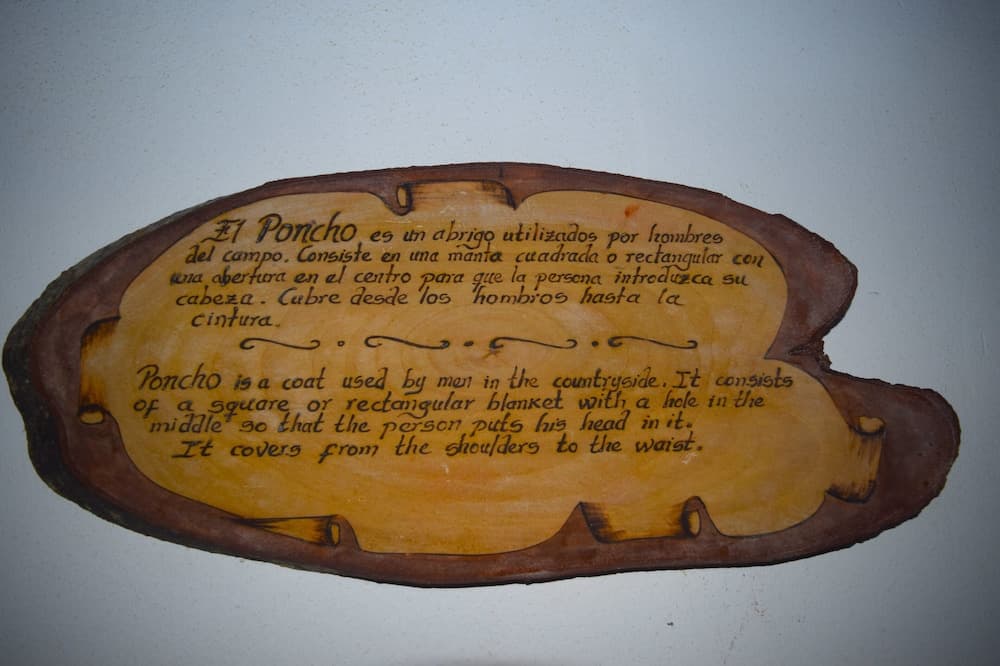 El Poncho es un abrigo utilizados por hombres
del campo. Consiste en una manta cuadrada o rectangular con
una abertura en el centro para que la persona introduzca su
cabeza. Cubre desde los hombros hasta la
cintura.
Poncho is a coat used by men in the countryside. It consists
of a square or rectangular blanket with a hole in the
middle so that the person puts his head in it.
It covers from the shoulders to the waist.